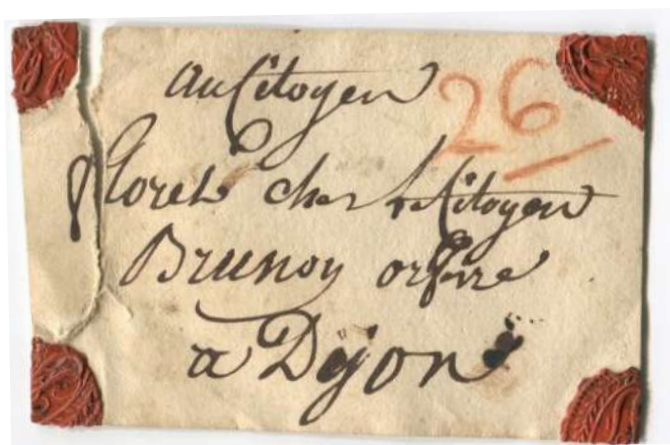 au Citoyen 26
floret ches le Citoyen
Brunoy orfevre
a Dijon